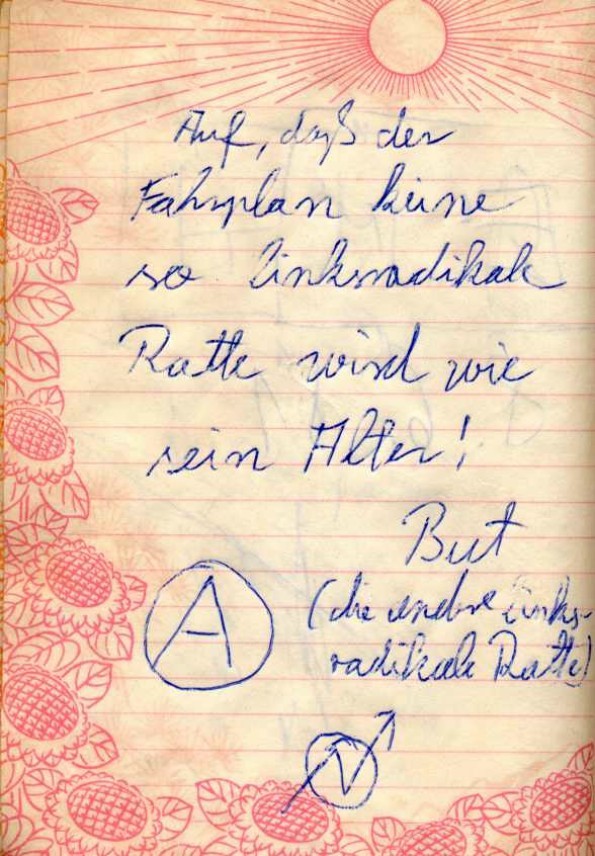 Auf, daß der
Fahrplan keine
so linksradikale
Ratte wird wie
sein Alter!
But
(die andere links-
radikale Ratte)
A
N